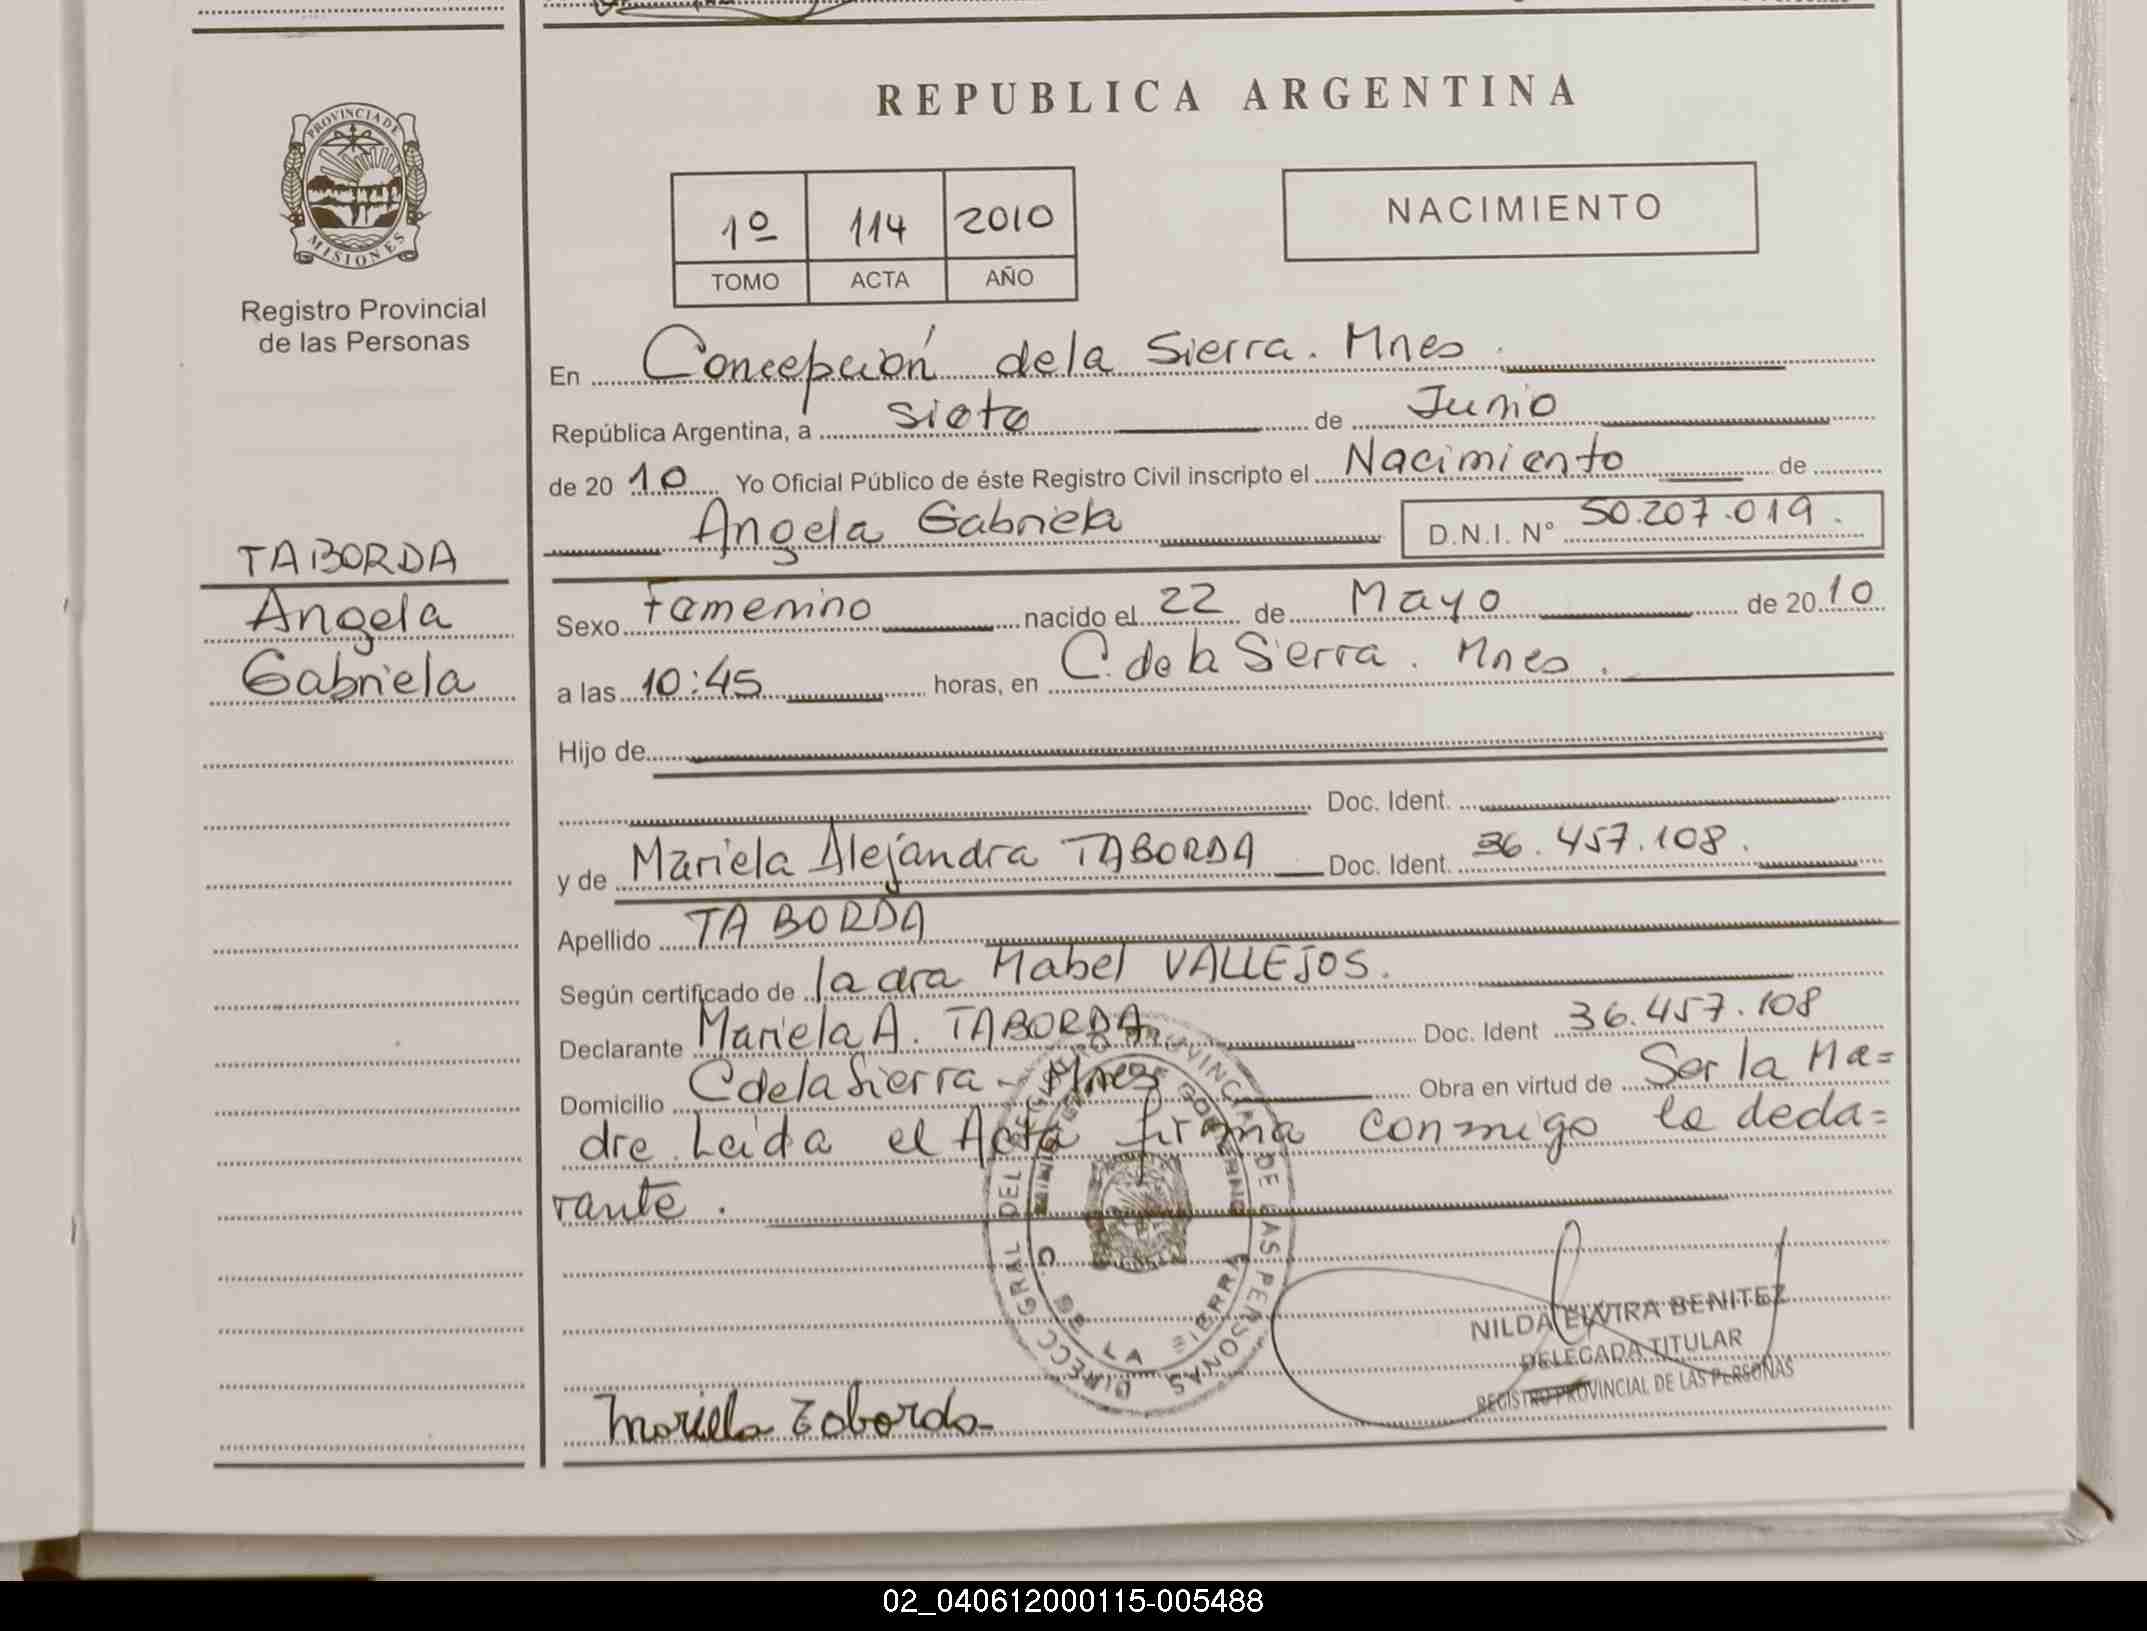 REPUBLICA ARGENTINA
PROVINCIA DE
MISIONES
Registro Provincial
de las Personas
1º 114 2010
TOMO ACTA AÑO
NACIMIENTO
En Concepción de la Sierra. Mnes.
República Argentina, a siete de Junio
de 2010 Yo Oficial Público de éste Registro Civil inscripto el Nacimiento de
Angela Gabriela D.N.I. Nº 50.207.019.
TABORDA
Angela
Gabriela
Sexo Femenino nacido el 22 de Mayo de 2010
a las 10:45 horas, en C. de la Sierra. Mnes.
Hijo de
Doc. Ident.
y de Mariela Alejandra TABORDA Doc. Ident. 36.457.108.
Apellido TABORDA
Según certificado de la dra Mabel VALLEJOS.
Declarante Mariela A. TABORDA Doc. Ident 36.457.108
Domicilio C de la Sierra - Mnes Obra en virtud de Ser la Ma=
dre. Leida el Acta firma conmigo la decla=
rante.
DIRECC GRAL DEL REGISTRO PROVINCIAL DE LAS PERSONAS
MINISTERIO GOBIERNO
C. DE LA SIERRA
NILDA ELVIRA BENITEZ
DELEGADA TITULAR
REGISTRO PROVINCIAL DE LAS PERSONAS
Mariela Taborda
02_040612000115-005488